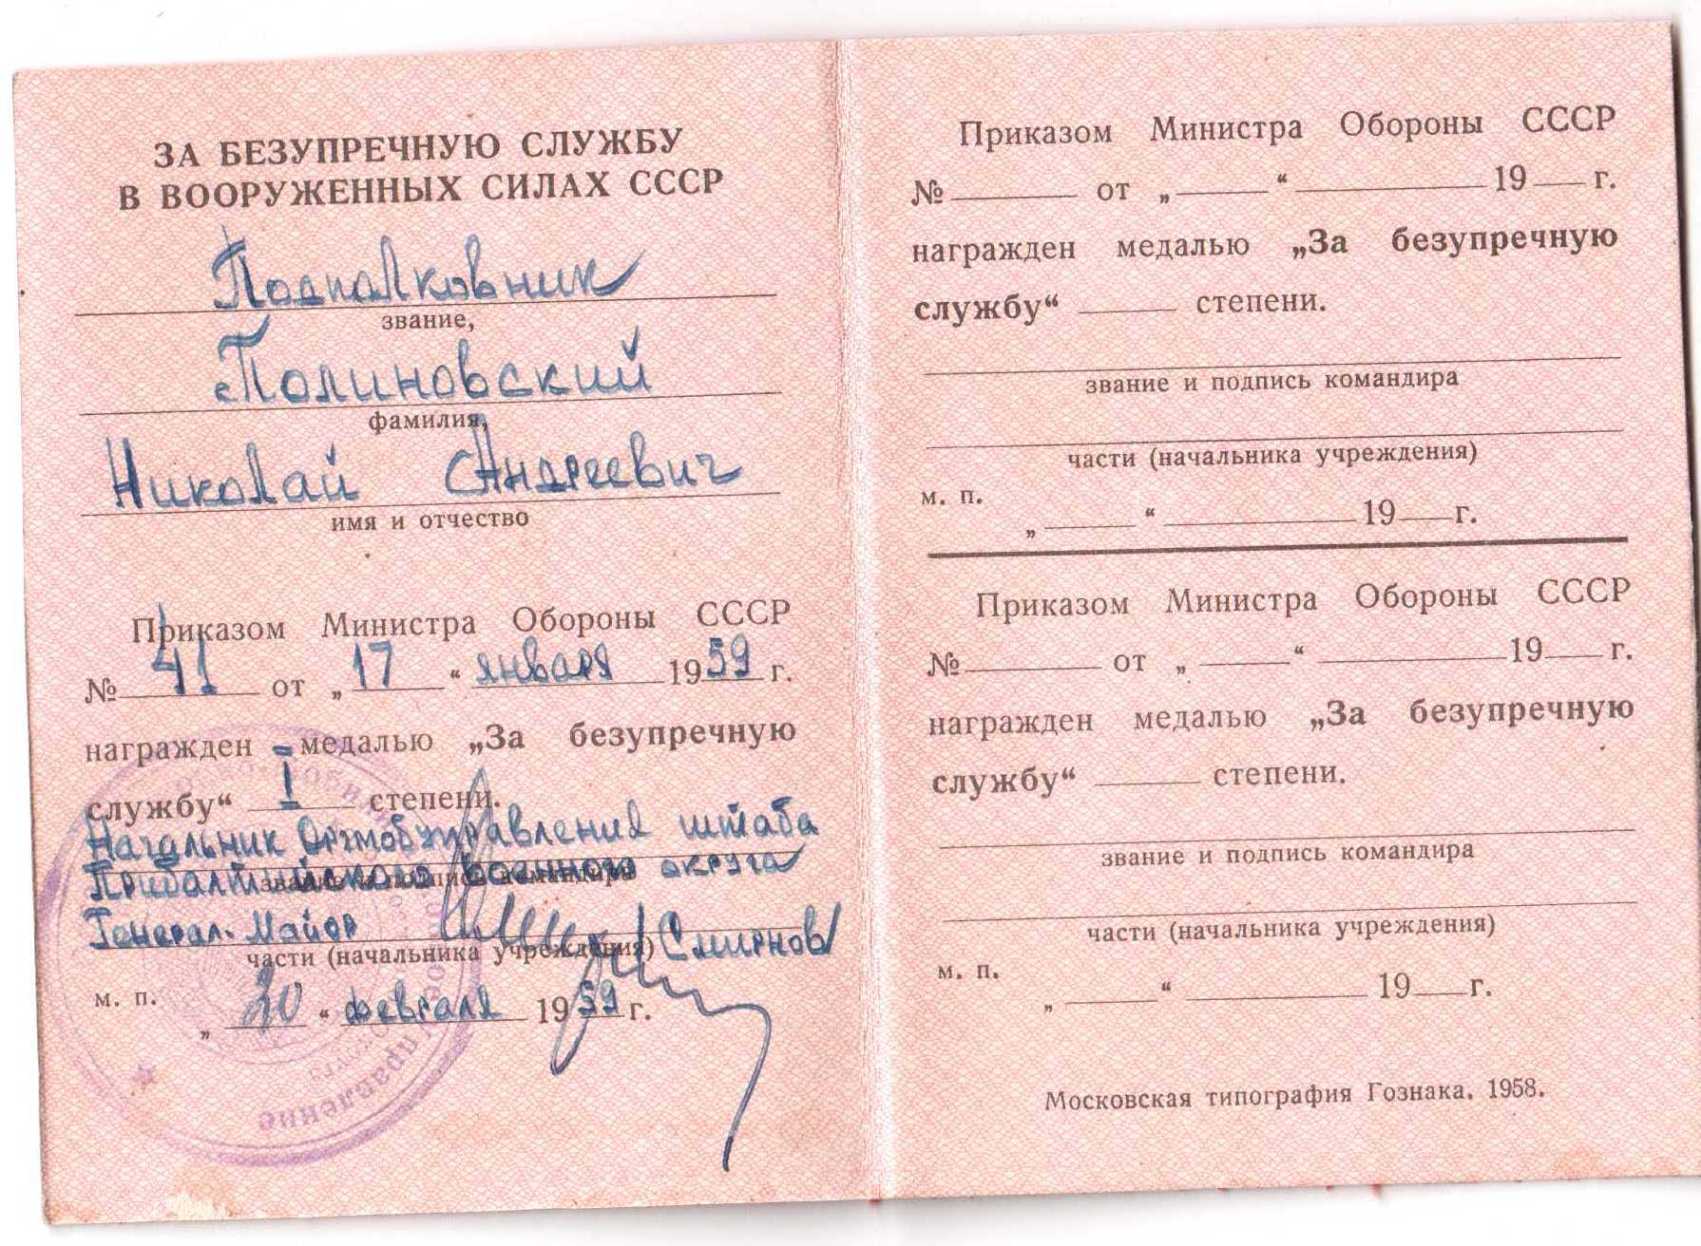 ЗА БЕЗУПРЕЧНУЮ СЛУЖБУ
В ВООРУЖЕННЫХ СИЛАХ СССР
Подполковник
звание,
Полиновский
фамилия,
Николай Андреевич
имя и отчество
Приказом Министра Обороны СССР
№ 41 от „17“ января 1959 г.
награжден медалью „За безупречную
службу“ I степени.
Начальник Оргмобуправления штаба
Прибалтийского военного округа
звание и подпись командира
Генерал-Майор Смирнов
части (начальника учреждения)
м. п.
„20“ февраля 1959 г.
управление
округа
Приказом Министра Обороны СССР
№ от „ “ 19 г.
награжден медалью „За безупречную
службу“ степени.
звание и подпись командира
части (начальника учреждения)
м. п.
„ “ 19 г.
Приказом Министра Обороны СССР
№ от „ “ 19 г.
награжден медалью „За безупречную
службу“ степени.
звание и подпись командира
части (начальника учреждения)
м. п.
„ “ 19 г.
Московская типография Гознака. 1958.